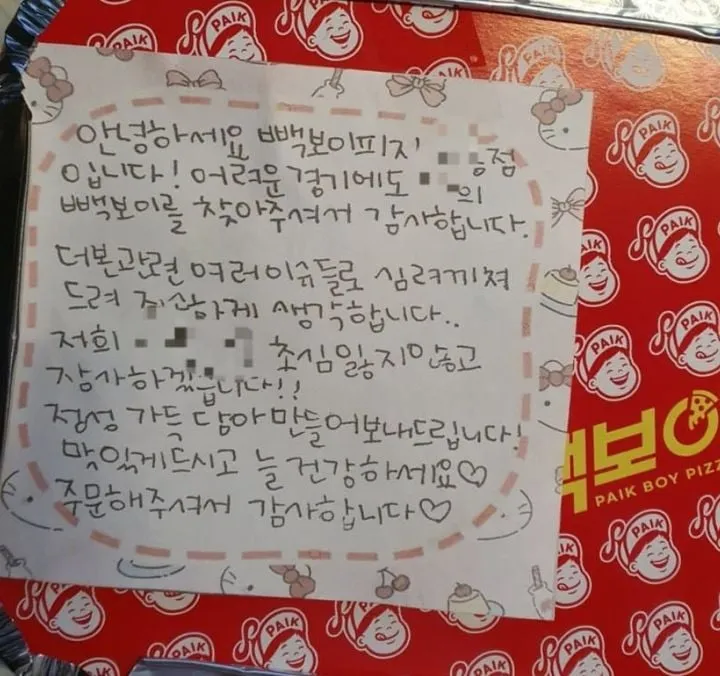 안녕하세요 빽보이피자 점
입니다! 어려운 경기에도 의
빽보이를 찾아주셔서 감사합니다.
더본관련 여러이슈들로 심려끼쳐
드려 죄송하게 생각합니다..
저희 초심잃지않고
장사하겠습니다!!
정성 가득 담아 만들어보내드립니다!
맛있게드시고 늘 건강하세요♡
주문해주셔서 감사합니다♡
빽보이
PAIK BOY PIZZ
PAIK
PAIK
PAIK
PAIK
PAIK
PAIK
PAIK
PAIK
PAIK
PAIK